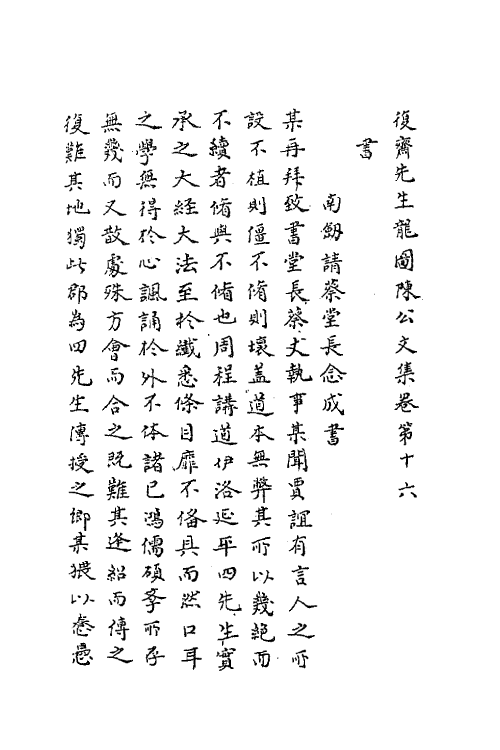 復齋先生龍圖陳公文集卷第十六
書
南劒請蔡堂長念成書
某再拜致書堂長蔡丈執事某聞賈誼有言人之所
設不植則僵不脩則壞盖道本無弊其所以幾絕而
不續者脩與不脩也周程講道伊洛延平四先生實
承之大經大法至於纖悉條目靡不俻具而然口耳
之學無得於心諷誦於外不体諸己鴻儒碩彥所存
無幾而又散處殊方會而合之既難其逢紹而傳之
復難其地獨此郡為四先生傳授之鄉某猥以卷愚